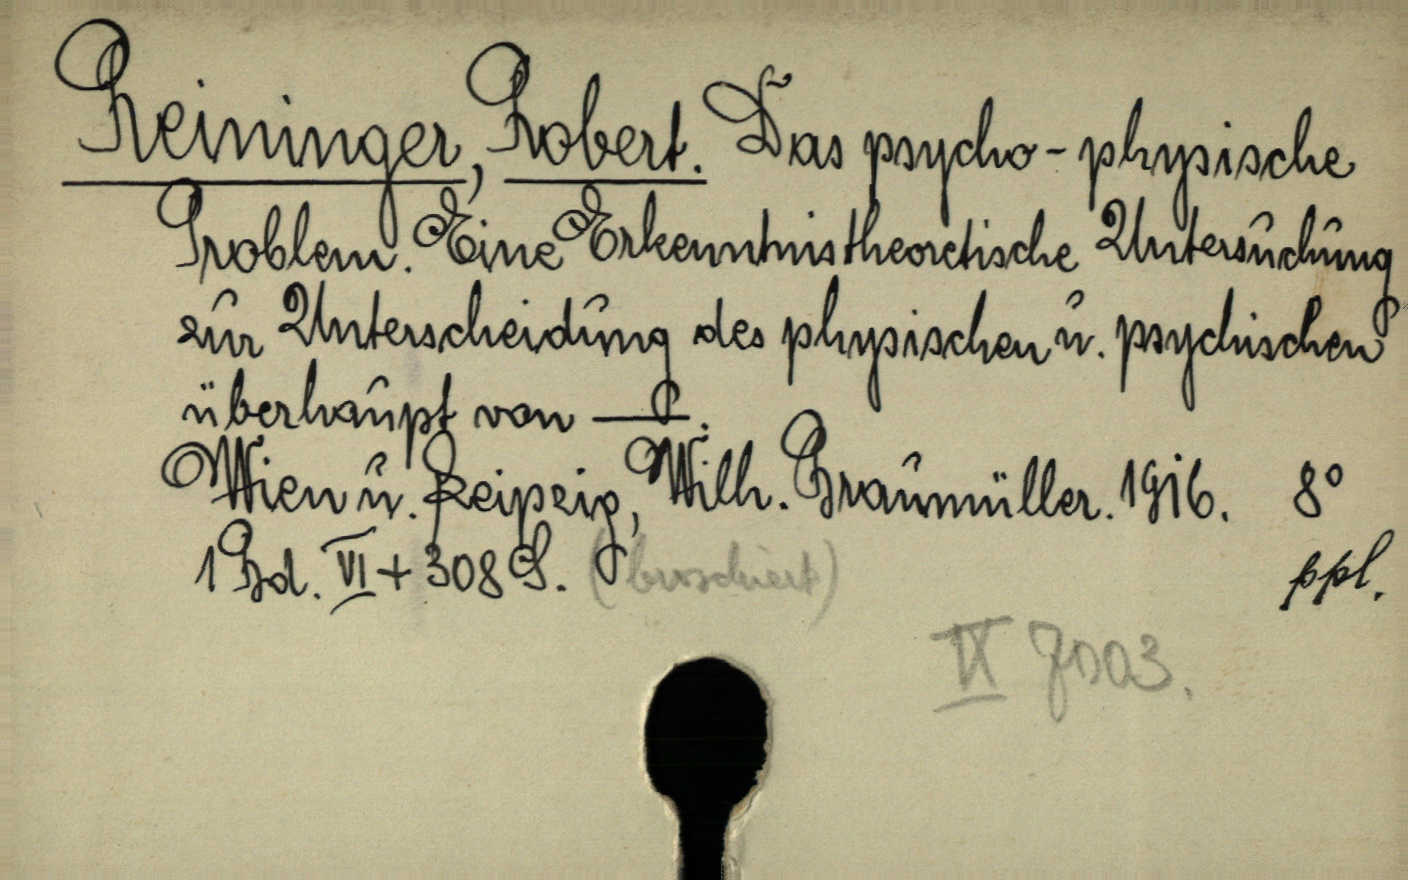 Reininger, Robert. Das psycho-physische
Problem. Eine Erkenntnistheoretische Untersuchung
zur Unterscheidung des physischen u. psychischen
überhaupt von —.
Wien u. Leipzig, Wilh. Braumüller. 1916. 8°
1 Bd. VI + 308 S. (broschiert) ppl.
IX